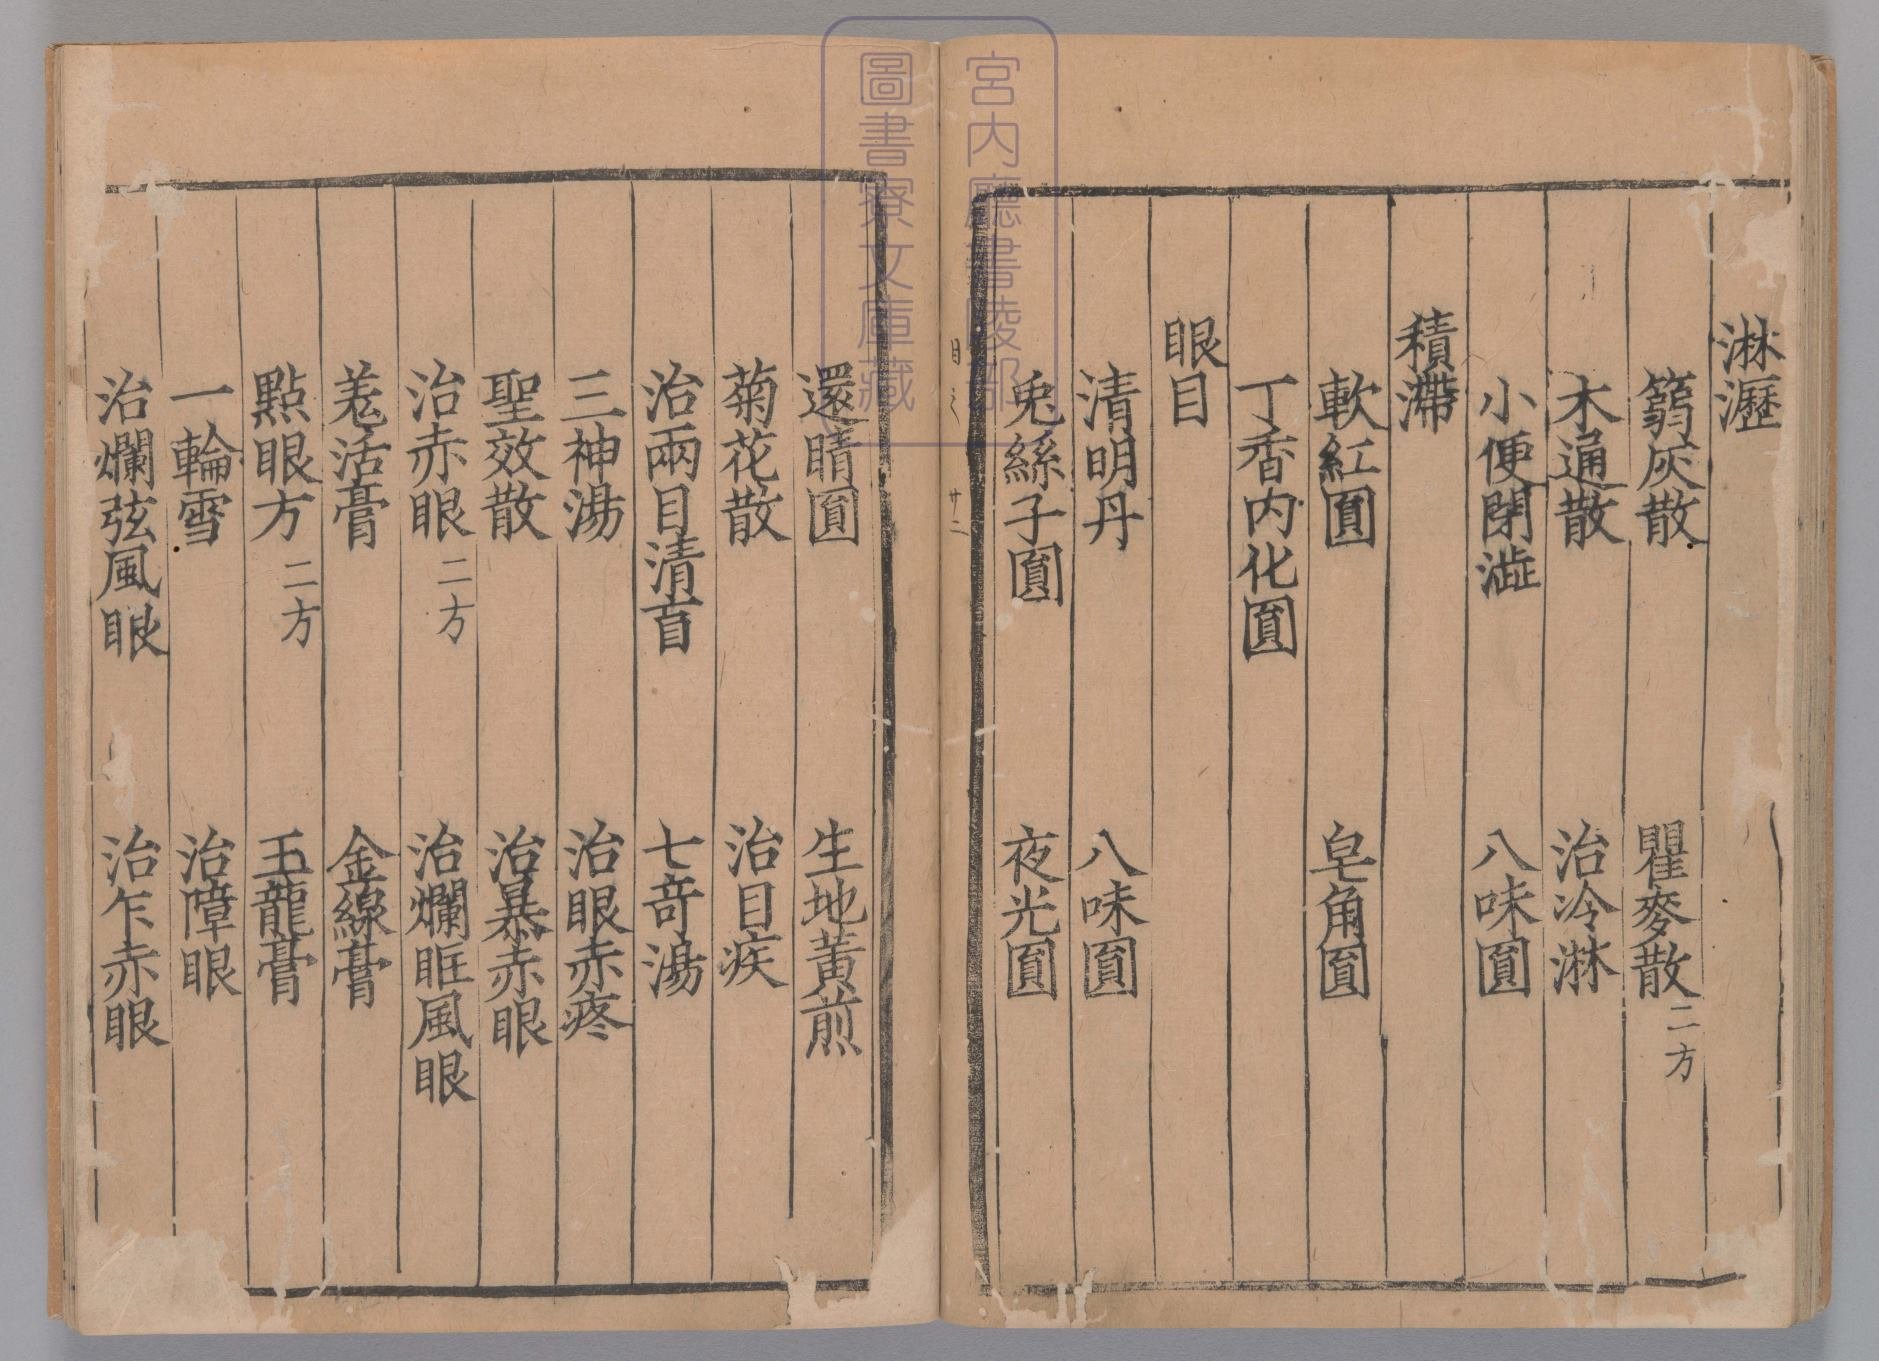 淋瀝
篛灰散　瞿麥散二方
木通散　治冷淋
小便閉澁　八味圓
積滯
軟紅圓　皂角圓
丁香内化圓
眼目
清明丹　八味圓
兎絲子圓　夜光圓
還睛圓　生地黄煎
菊花散　治目疾
治兩目清盲　七竒湯
三神湯　治眼赤疼
聖效散　治暴赤眼
治赤眼二方　治爛眶風眼
羗活膏　金線膏
點眼方二方　玉龍膏
一輪雪　治障眼
治爛弦風眼　治乍赤眼
宮内廳書陵部
圖書寮文庫藏